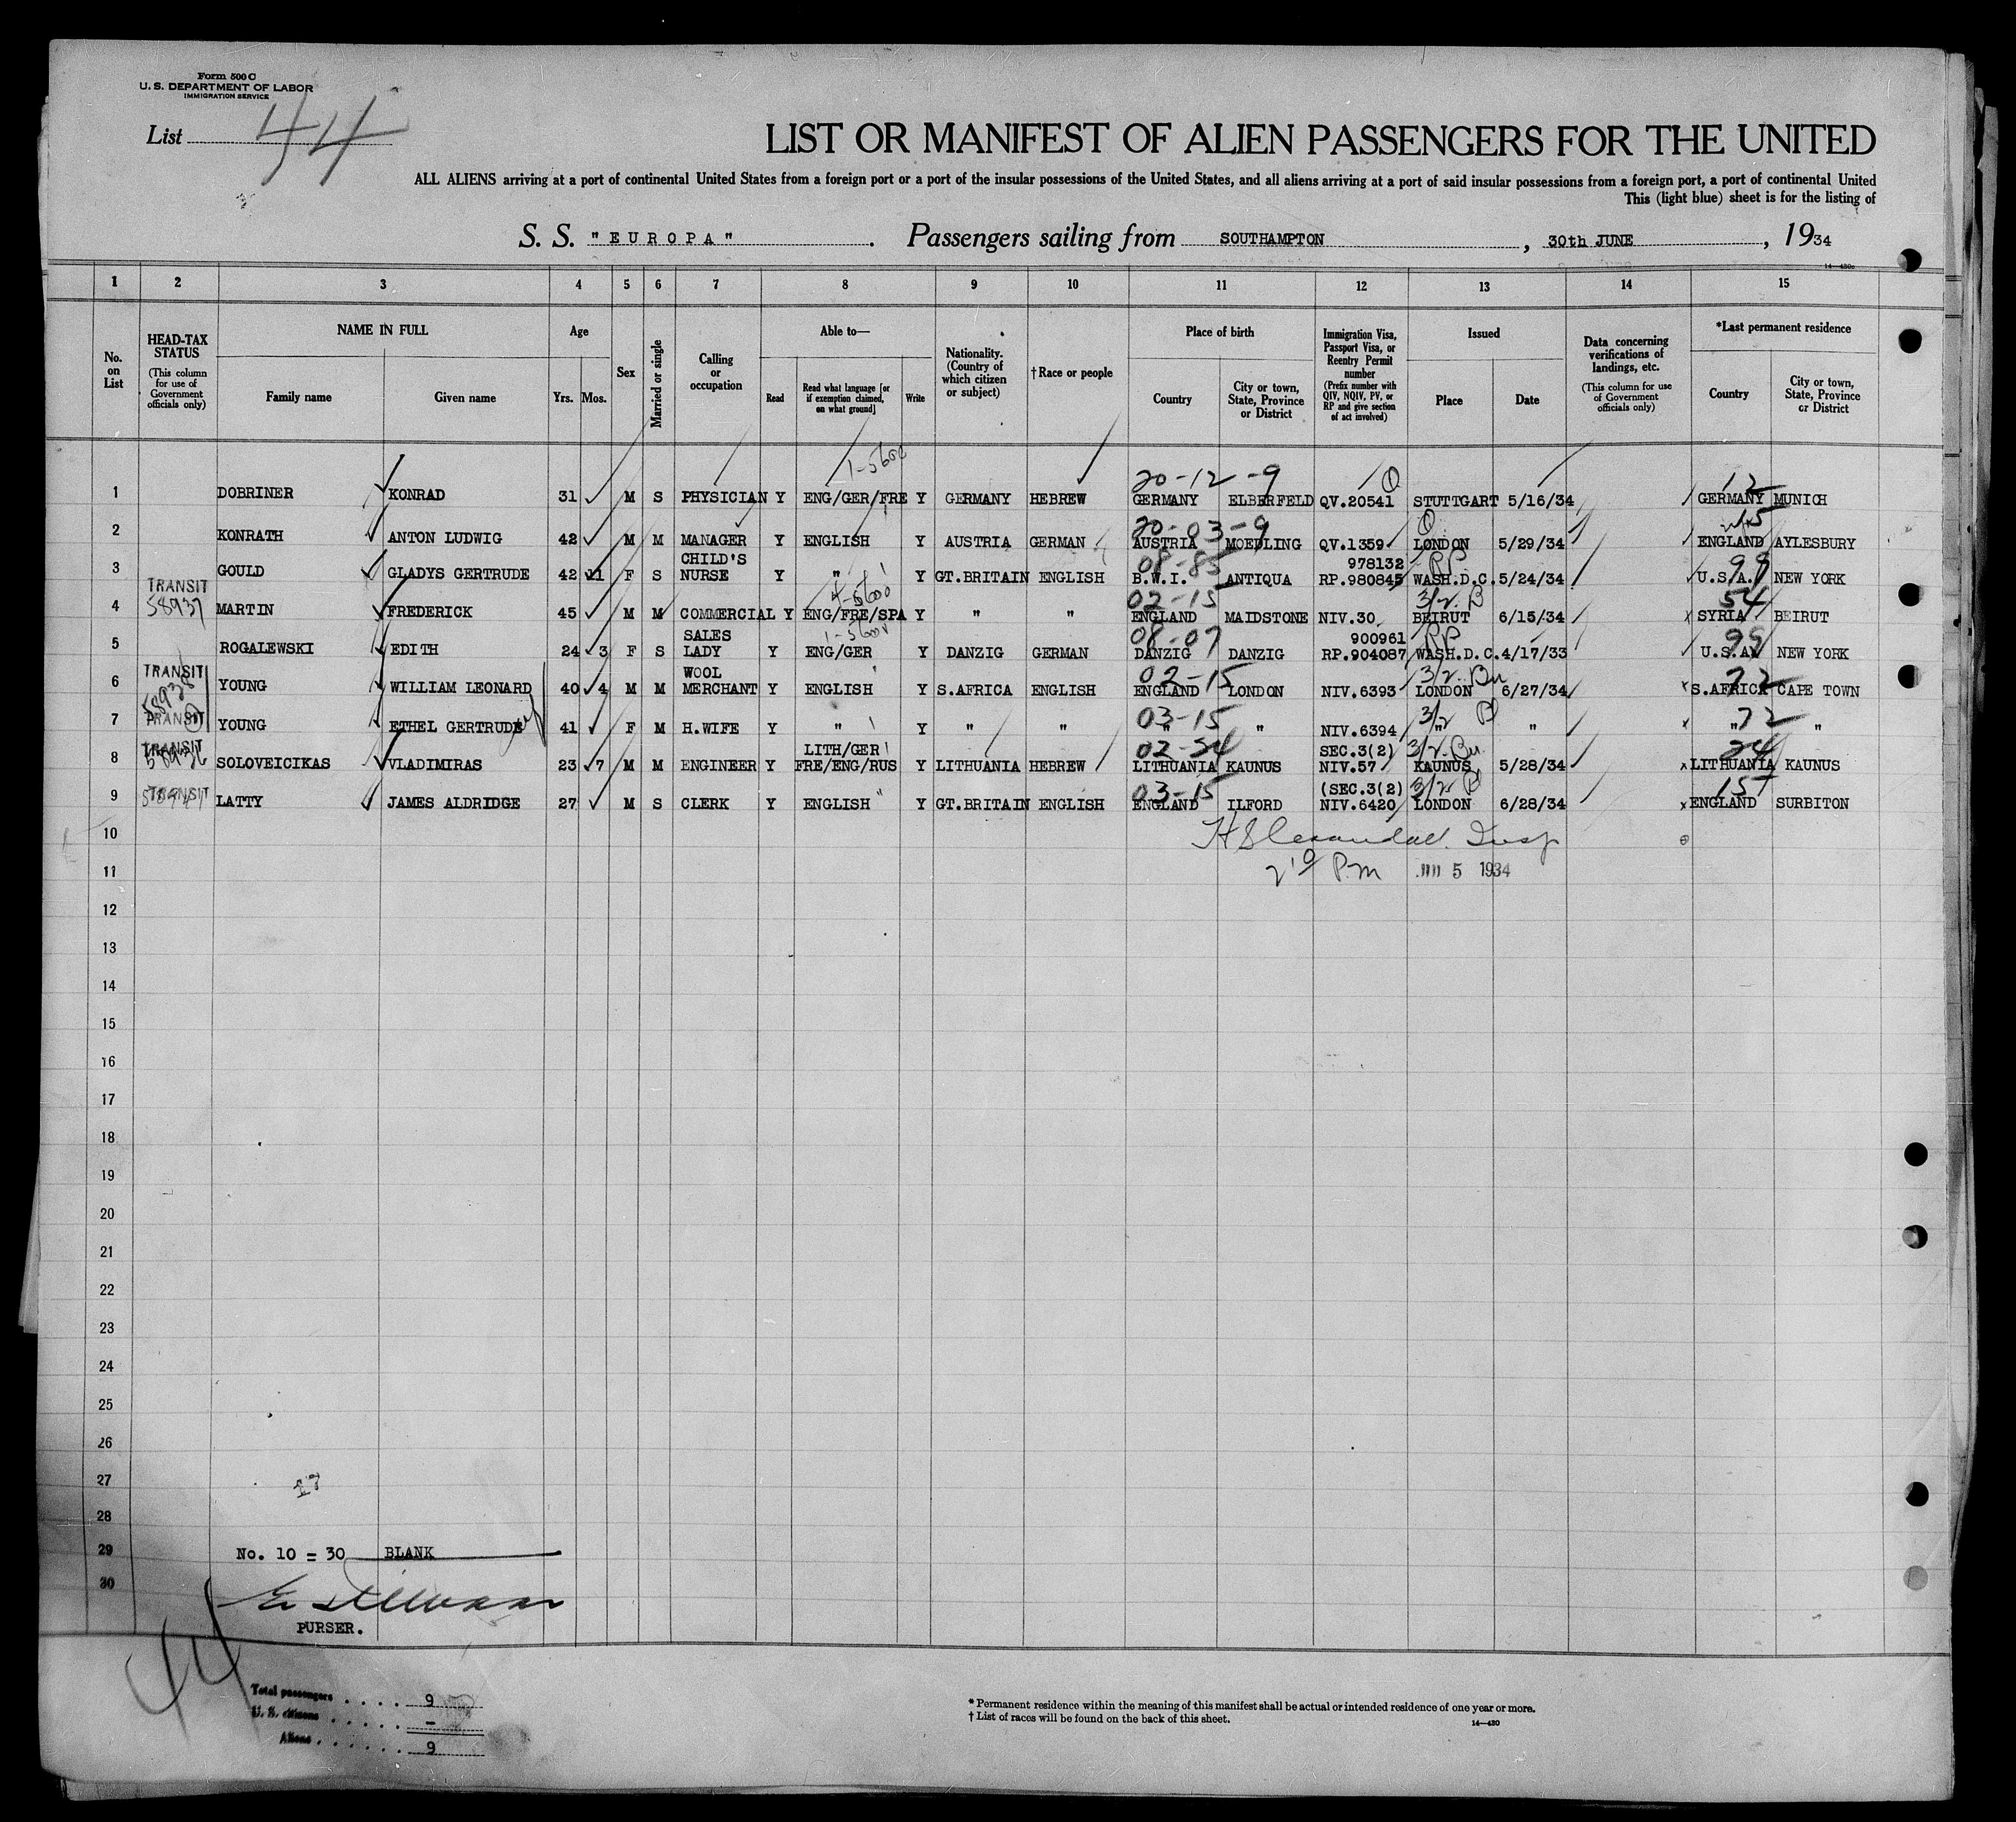 Form 500 C
U. S. DEPARTMENT OF LABOR
IMMIGRATION SERVICE
List 44
LIST OR MANIFEST OF ALIEN PASSENGERS FOR THE UNITED
ALL ALIENS arriving at a port of continental United States from a foreign port or a port of the insular possessions of the United States, and all aliens arriving at a port of said insular possessions from a foreign port, a port of continental United
This (light blue) sheet is for the listing of
S. S. "EUROPA" . Passengers sailing from SOUTHAMPTON , 30th JUNE , 1934
14—430c
1 2 3 4 5 6 7 8 9 10 11 12 13 14 15
No. on List
HEAD-TAX STATUS
(This column for use of Government officials only)
NAME IN FULL
Family name Given name
Age
Yrs. Mos.
Sex
Married or single
Calling or occupation
Able to—
Read
Read what language [or if exemption claimed, on what ground]
Write
Nationality. (Country of which citizen or subject)
†Race or people
Place of birth
Country
City or town, State, Province or District
Immigration Visa, Passport Visa, or Reentry Permit number
(Prefix number with QIV, NQIV, PV, or RP and give section of act involved)
Issued
Place Date
Data concerning verifications of landings, etc.
(This column for use of Government officials only)
*Last permanent residence
Country
City or town, State, Province or District
1-5600
20-12-9 12
1 DOBRINER KONRAD 31 M S PHYSICIAN Y ENG/GER/FRE Y GERMANY HEBREW GERMANY ELBERFELD QV.20541 STUTTGART 5/16/34 GERMANY MUNICH
20-03-9 15
2 KONRATH ANTON LUDWIG 42 M M MANAGER Y ENGLISH Y AUSTRIA GERMAN AUSTRIA MOEDLING QV.1359 LONDON 5/29/34 ENGLAND AYLESBURY
CHILD'S 08-85 978132 RP 99
3 GOULD GLADYS GERTRUDE 42 11 F S NURSE Y " Y GT.BRITAIN ENGLISH B.W.I. ANTIQUA RP.980845 WASH.D.C. 5/24/34 U.S.A. NEW YORK
TRANSIT 58937 4-5600 02-15 3/2 B 54
4 MARTIN FREDERICK 45 M M COMMERCIAL Y ENG/FRE/SPA Y " " ENGLAND MAIDSTONE NIV.30 BEIRUT 6/15/34 SYRIA BEIRUT
SALES 1-5600 08-07 900961 RP 99
5 ROGALEWSKI EDITH 24 3 F S LADY Y ENG/GER Y DANZIG GERMAN DANZIG DANZIG RP.904087 WASH.D.C. 4/17/33 U.S.A. NEW YORK
TRANSIT 58938 WOOL 02-15 3/2 Bu 72
6 YOUNG WILLIAM LEONARD 40 4 M M MERCHANT Y ENGLISH Y S.AFRICA ENGLISH ENGLAND LONDON NIV.6393 LONDON 6/27/34 S.AFRICA CAPE TOWN
TRANSIT 03-15 3/2 B 72
7 YOUNG ETHEL GERTRUDE 41 F M H.WIFE Y " Y " " " " NIV.6394 " " " "
TRANSIT 58936 LITH/GER 02-24 SEC.3(2) 3/2 Bu 24
8 SOLOVEICIKAS VLADIMIRAS 23 7 M M ENGINEER Y FRE/ENG/RUS Y LITHUANIA HEBREW LITHUANIA KAUNUS NIV.57 KAUNUS 5/28/34 LITHUANIA KAUNUS
TRANSIT 03-15 (SEC.3(2) 3/2 B 15
9 LATTY JAMES ALDRIDGE 27 M S CLERK Y ENGLISH Y GT.BRITAIN ENGLISH ENGLAND ILFORD NIV.6420 LONDON 6/28/34 ENGLAND SURBITON
10 Insp
11 2 10 P.m 5 1934
12
13
14
15
16
17
18
19
20
21
22
23
24
25
26
27
28
29 No. 10 = 30 BLANK
30
PURSER.
44
Total passengers . . . . 9
U. S. citizens . . . . . –
Aliens . . . . . . 9
* Permanent residence within the meaning of this manifest shall be actual or intended residence of one year or more.
† List of races will be found on the back of this sheet.
14—430